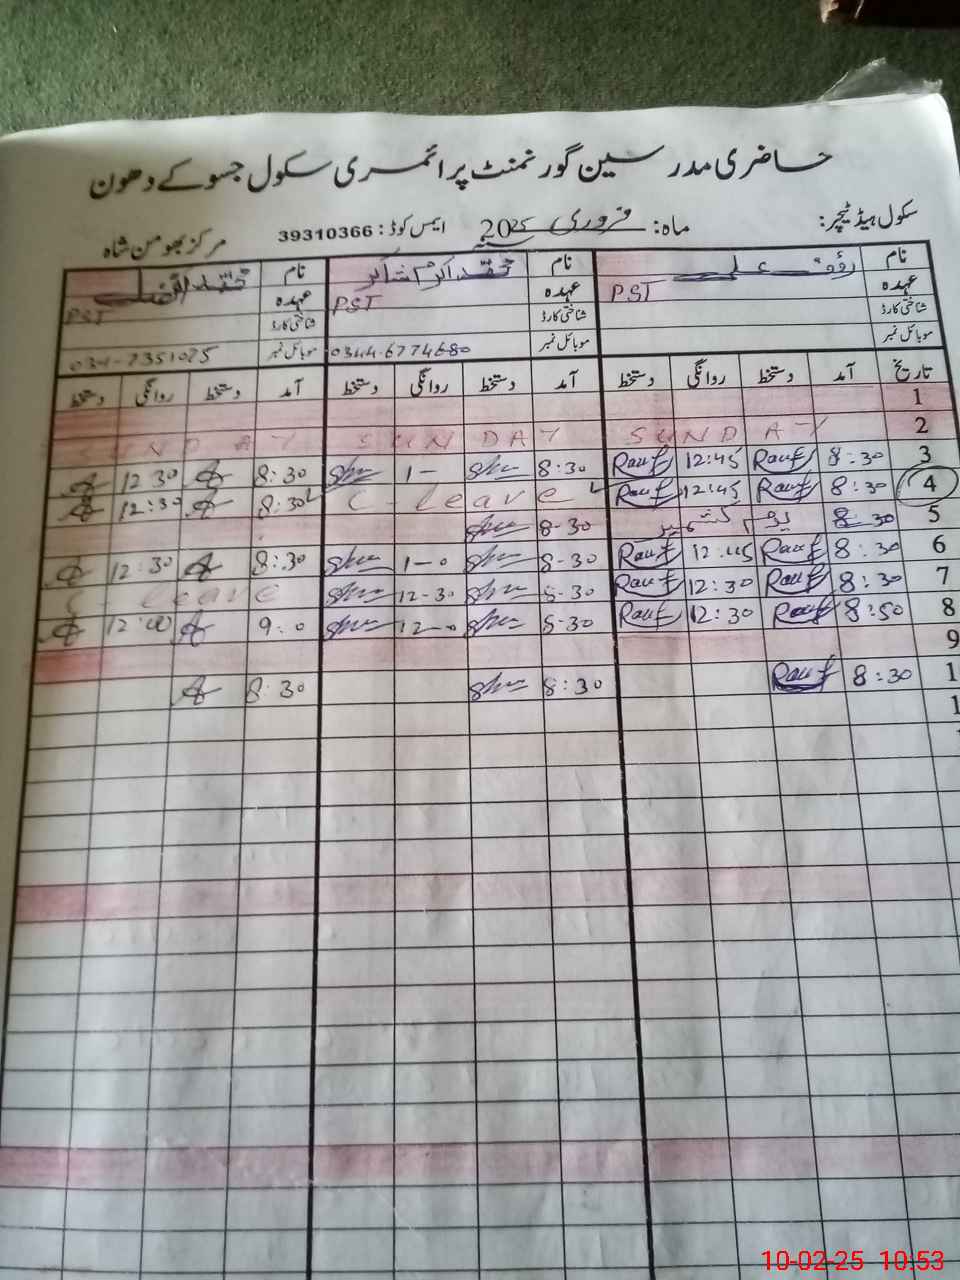 حاضری مدرسین گورنمنٹ پرائمری سکول جسوکے دھون
سکول ہیڈ ٹیچر: ماہ: فروری 2025 ایمس کوڈ: 39310366 مرکز بھومن شاہ
نام رؤف علی نام محمد اکرم شاکر نام محمد افضل
عہدہ PST عہدہ PST عہدہ PST
شناختی کارڈ شناختی کارڈ شناختی کارڈ
موبائل نمبر موبائل نمبر 0344-6774680 موبائل نمبر
تاریخ آمد دستخط روانگی دستخط آمد دستخط روانگی دستخط آمد دستخط روانگی دستخط
1
2 SUNDAY SUNDAY SUNDAY
3 8:30 Rauf 12:45 Rauf 8:30 1- 8:30 12 30
4 8:30 Rauf 12:45 Rauf C-leave 8:30 12:30
5 8:30 یوم کشمیر 8-30
6 8:30 Rauf 12:45 Rauf 8-30 1-0 8:30 12:30
7 8:30 Rauf 12:30 Rauf 8-30 12-30 C-leave
8 8:50 Rauf 12:30 Rauf 8-30 12-0 9:0 12:00
9
1 8:30 Rauf 8:30 8:30
1
10-02-25 10:53